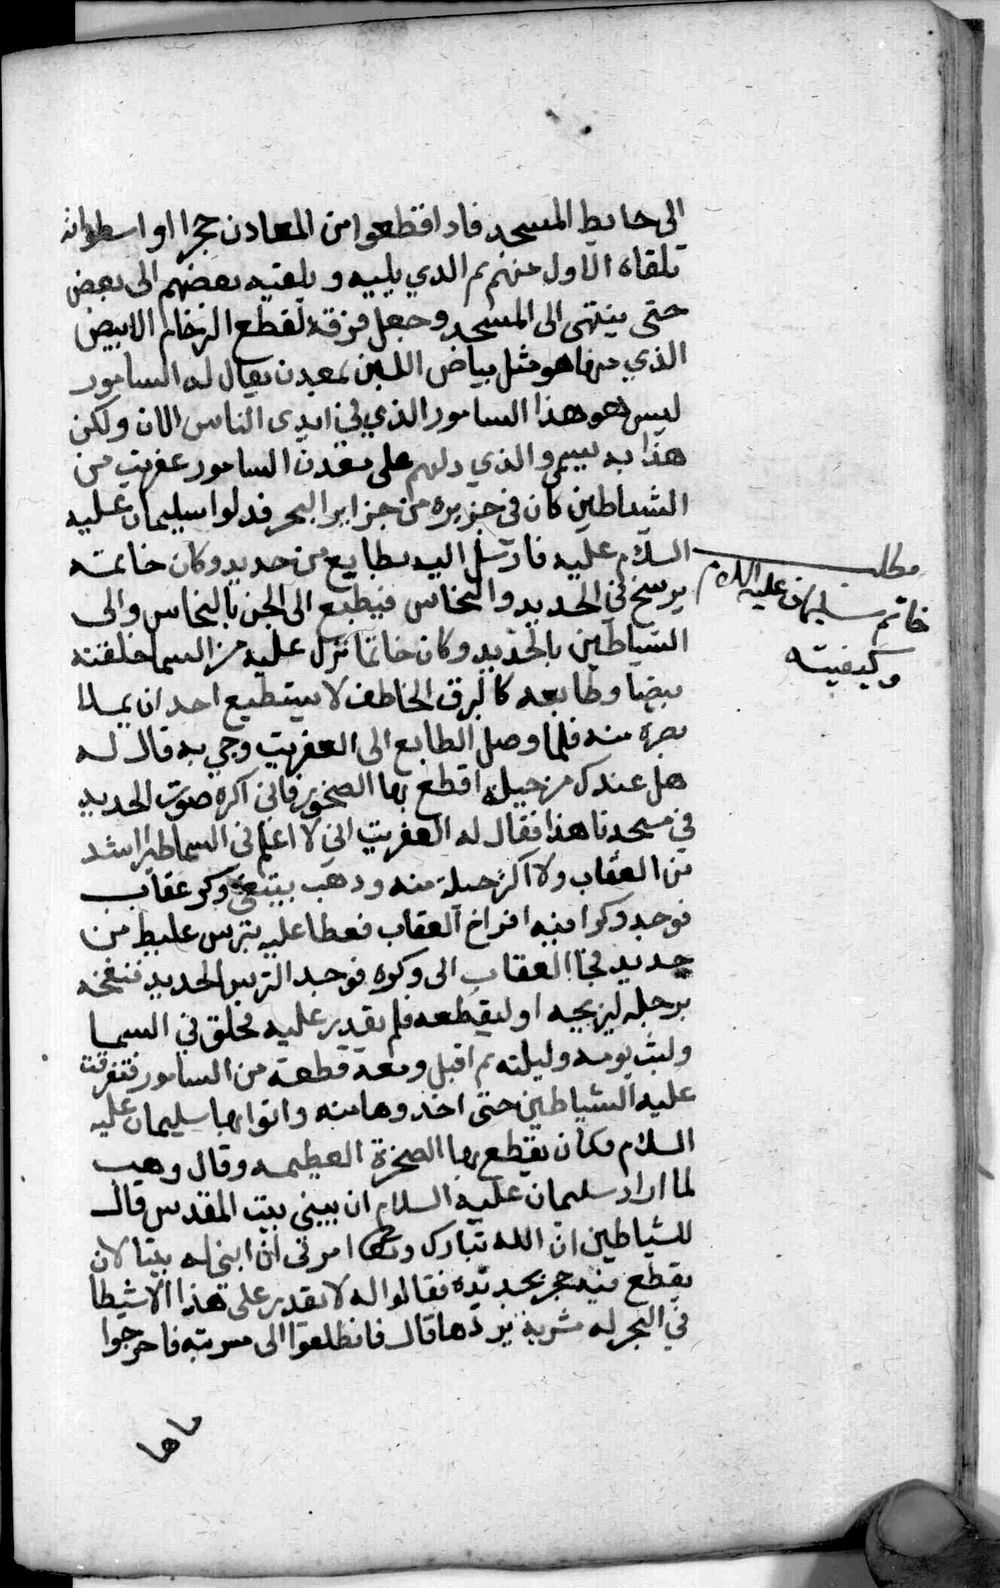 الى حايط المسجد فاذا قطعوا من المعادن حجرا او اسطوانه
تلقاه الاول منهم ثم الذي يليه ويلقيه بعضهم الى بعض
حتى ينتهى الى المسجد وجعل فرقة لقطع الرخام الابيض
الذي منها هو مثل بياض اللبن بمعدن يقال له السامور
ليس هو هذا السامور الذي في ايدى الناس الان ولكن
هذا به يسمى والذي دلهم على معدن السامور عفريت من
الشياطين كان في جزيرة من جزاير البحر فدلوا سليمان عليه
السلام عليه فارسل اليه بطابع من حديد وكان خاتمه
يرسخ في الحديد والنحاس فيطبع الى الجن بالنحاس والى
الشياطين بالحديد وكان خاتما نزل عليه من السما حلقته
بيضا وطابعه كالبرق الخاطف لا يستطيع احد ان يملا
بصره منه فلما وصل الطابع الى العفريت وجي به قال له
هل عندك من حيلة اقطع بها الصخور فاني اكره صوت الحديد
في مسجدنا هذا فقال له العفريت اني لا اعلم في السما طيرا اشد
من العقاب ولا اكثر حيلة منه وذهب يبتغي وكر عقاب
فوجد وكرا فيه افراخ العقاب فغطا عليه بترس غليظ من
حديد فجا العقاب الى وكره فوجد الترس الحديد فنفخه
برجله ليزيحه او ليقطعه فلم يقدر عليه فحلق في السما
ولبث يومه وليلته ثم اقبل ومعه قطعة من السامور فتفرقت
عليه الشياطين حتى اخذوها منه واتوا بها سليمان عليه
السلام فكان يقطع بها الصخرة العظيمه وقال وهب
لما اراد سليمان عليه السلام ان يبني بيت المقدس قال
للشياطين ان الله تبارك وتعالى امرني ان ابني له بيتا لا
يقطع فيه حجر بحديده فقالوا له لا يقدر على هذا الا شيطان
في البحر له مشربة يردها قال فانطلقوا الى مشربته فاخرجوا
ماها
مطلب
خاتم سليمان عليه السلام
وكيفيته